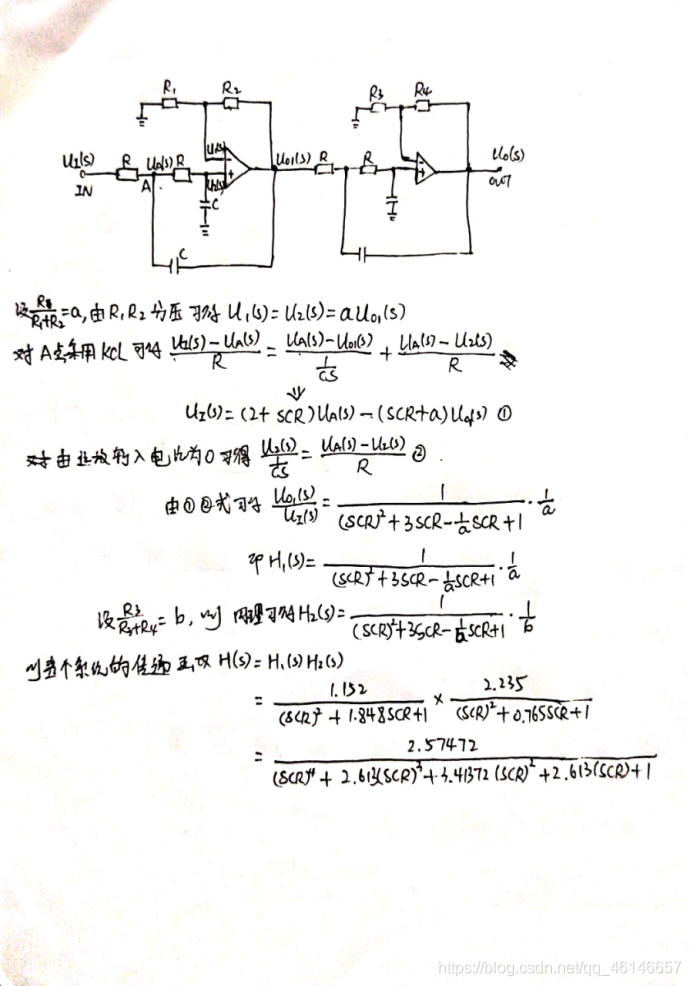 R₁ R₂ R₃ R₄
U_I(s) R U_A(s) R U₁(s) U₀₁(s) R R U₀(s)
IN A U₂(s) C OUT
C
设 R₁/(R₁+R₂)=a, 由R₁R₂分压可得 U₁(s)=U₂(s)=aU₀₁(s)
对A点采用KCL可得 (U_I(s)-U_A(s))/R = (U_A(s)-U₀₁(s))/(1/CS) + (U_A(s)-U₂(s))/R
⇓
U_I(s)=(2+SCR)U_A(s)-(SCR+a)U₀₁(s) ①
对由运放输入电流为0可得 U₂(s)/(1/CS) = (U_A(s)-U₂(s))/R ②.
由①②式可得 U₀₁(s)/U_I(s) = 1/((SCR)²+3SCR-(1/a)SCR+1)·1/a
即 H₁(s)= 1/((SCR)²+3SCR-(1/a)SCR+1)·1/a
设 R₃/(R₃+R₄)=b, 则 同理可得H₂(s)= 1/((SCR)²+3SCR-(1/b)SCR+1)·1/b
则整个系统的传递函数 H(s)=H₁(s)H₂(s)
= 1.152/((SCR)²+1.848SCR+1) × 2.235/((SCR)²+0.765SCR+1)
= 2.57472/((SCR)⁴+2.613(SCR)³+3.41372(SCR)²+2.613(SCR)+1)
https://blog.csdn.net/qq_46146657